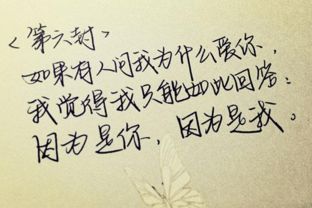 <第六封>
如果有人问我为什么爱你，
我觉得我只能如此回答：
因为是你，因为是我。